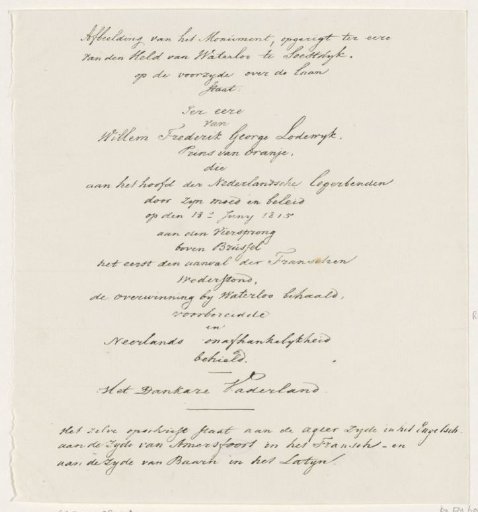 Afbeelding van het Monument, opgerigt ter eere
van den Held van Waterloo te Soestdyk.
op de voorzyde over de laan
staat:
Ter eere
van
Willem Frederik George Lodewyk.
Prins van Oranje,
die
aan het hoofd der Nederlandsche legerbenden
door zyn moed en beleid
op den Juny 1815
aan den Viersprong
boven Brussel
het eerst den aanval der Franschen
Wederstond,
de overwinning by Waterloo behaald,
voorbereidde
en
Neerlands onafhankelykheid
behield.
Het Dankare Vaderland.
Het zelve opschrift staat aan de agter Zyde in het Engelsch
aan de Zyde van Amersfoort in het Fransch - en
aan de Zyde van Baarn in het Latyn.